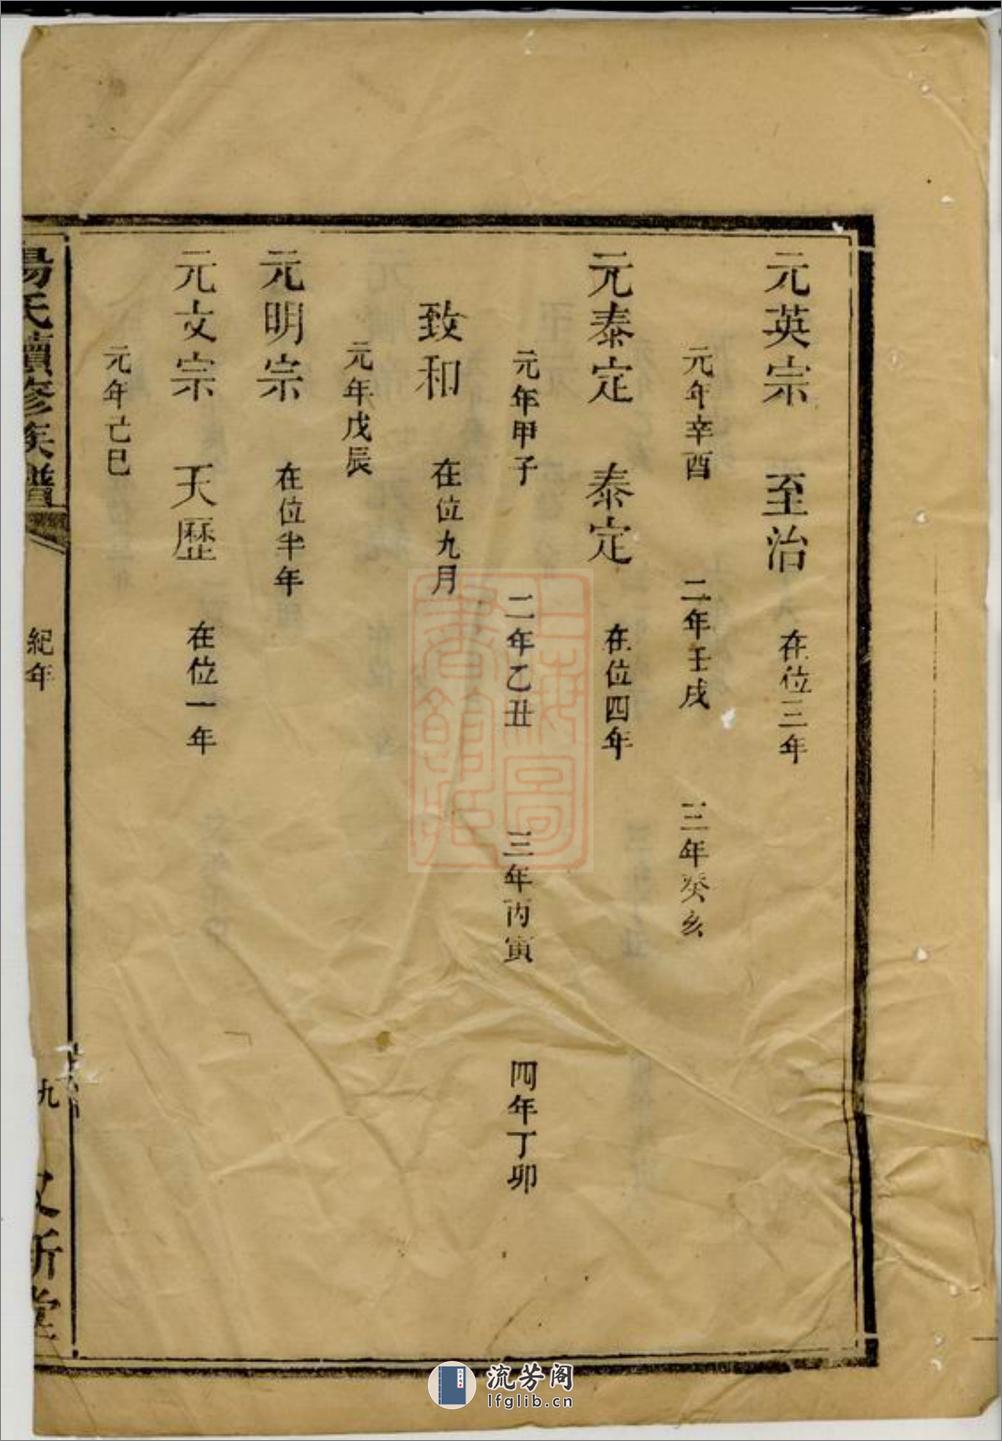 元英宗 至治 在位三年
元年辛酉 二年壬戌 三年癸亥
元泰定 泰定 在位四年
元年甲子 二年乙丑 三年丙寅 四年丁卯
致和 在位九月
元年戊辰
元明宗 在位半年
元文宗 天歷 在位一年
元年己巳
氏續修族譜 紀年 九
上海圖書館藏
流芳阁
lfglib.cn